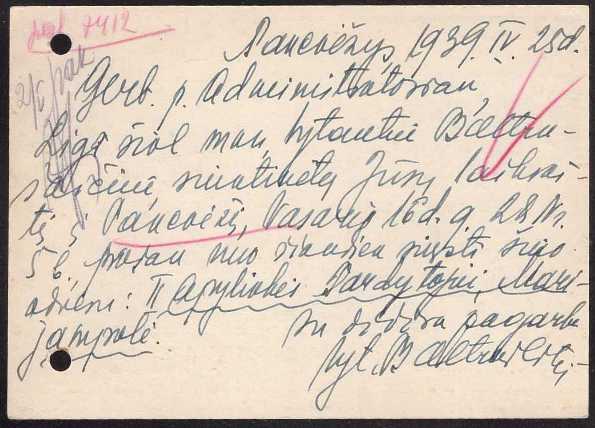 Panevėžys, 1939. IV. 25d.
Gerb. p. Administratoriau
Ligi šiol man, Vytautui Baltru-
šaičiui, siuntinėtą Jūsų laikraš-
tį į Panevėžį, Vasario 16 d. g. 28 Nr.
prašau nuo šiandien siųsti šiuo
adresu: II Apylinkės Tardytojui, Mari-
jampolė.
Su didžia pagarba
Vyt. Baltrušaitis